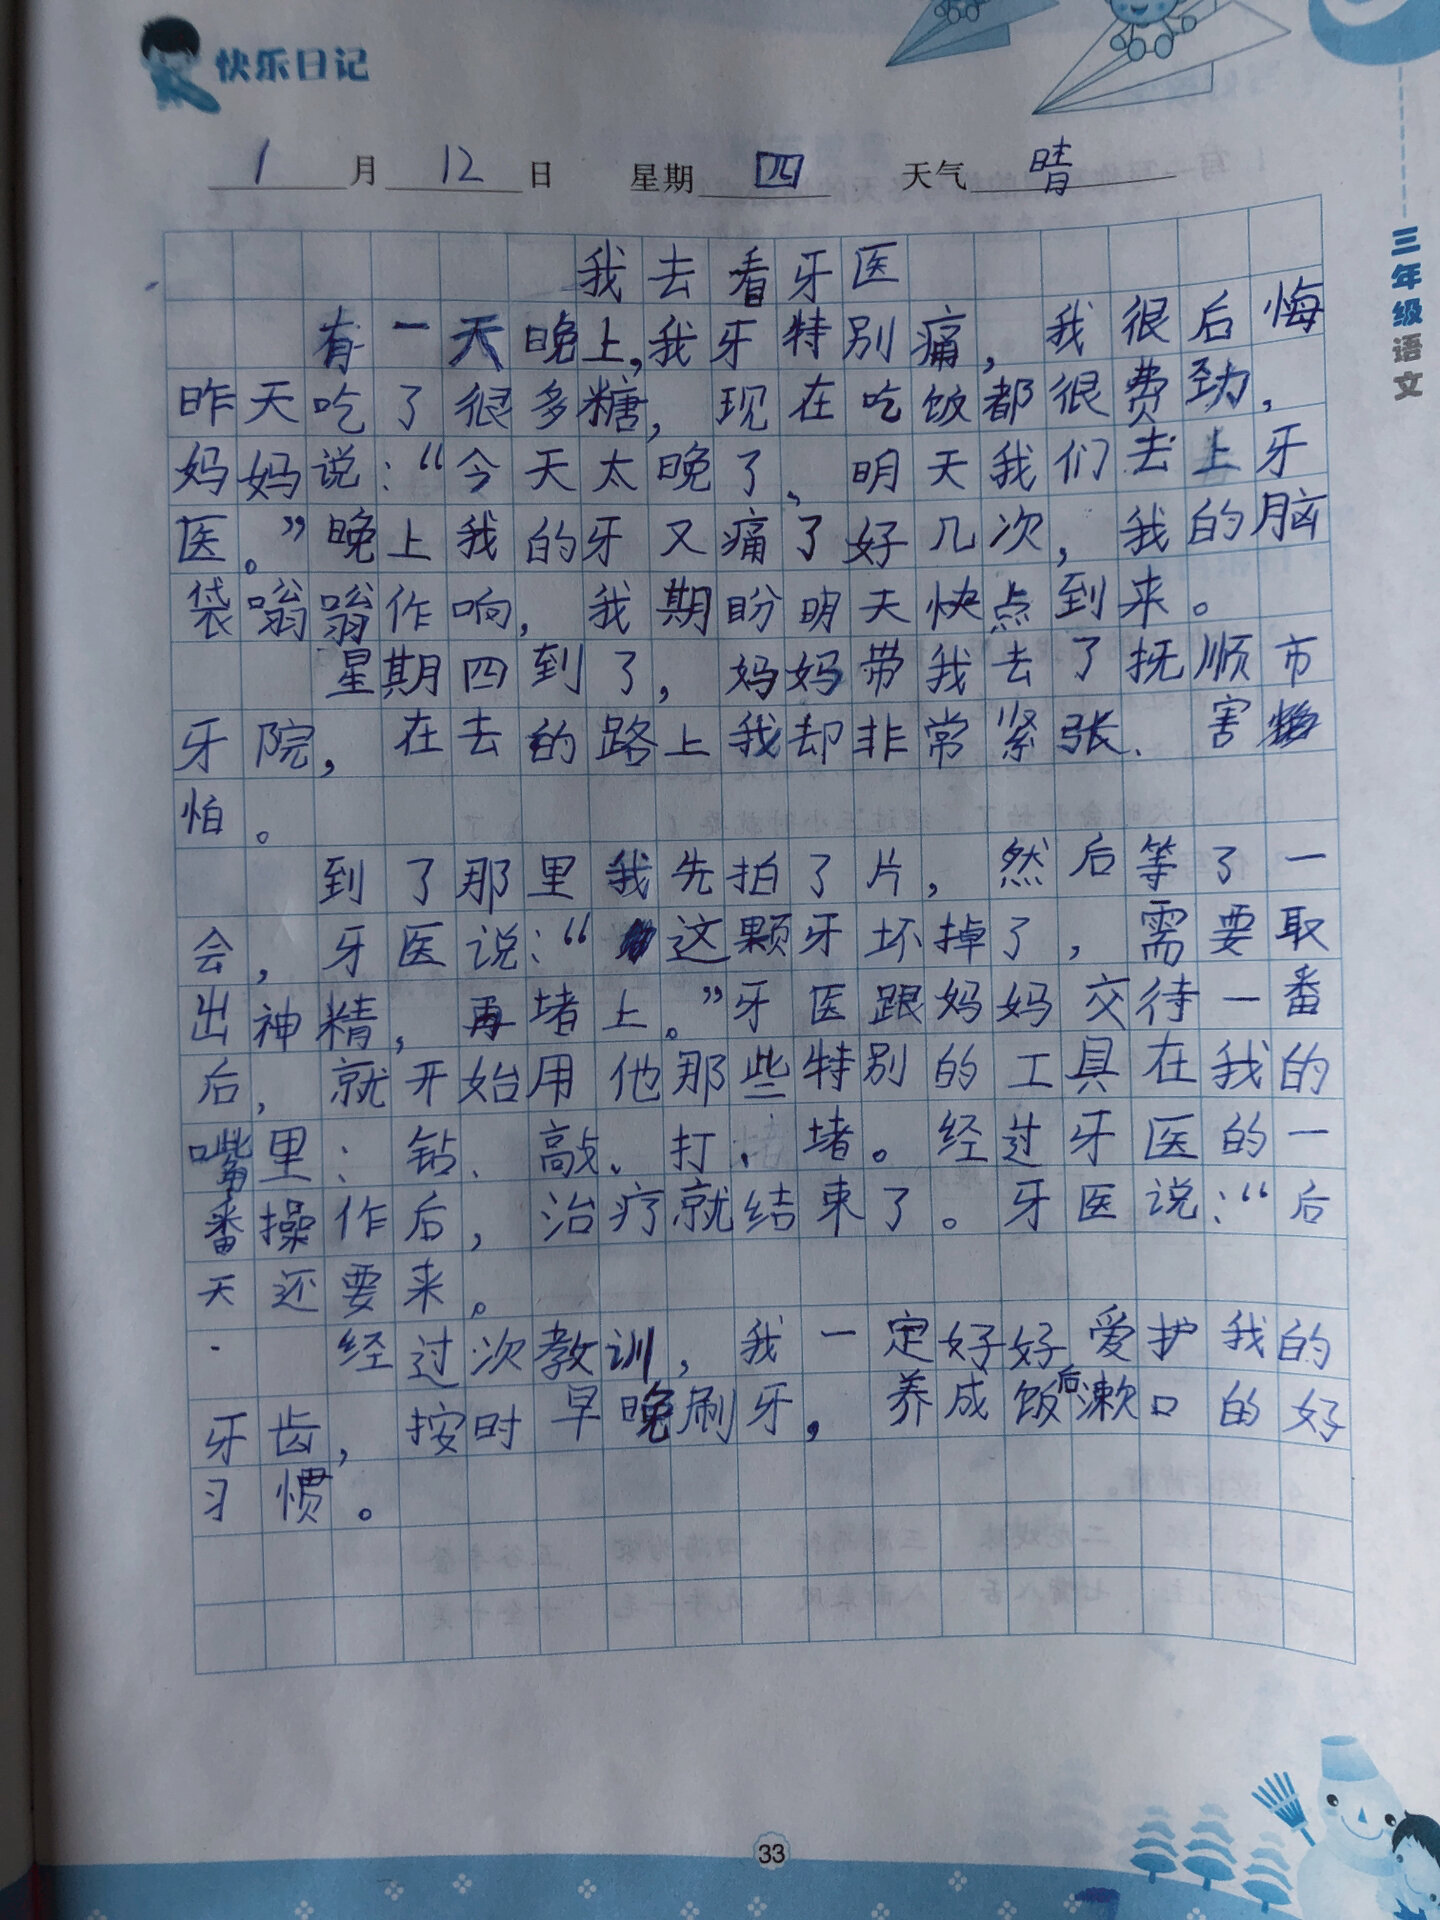 快乐日记
1月12日 星期四 天气晴
三年级语文
我去看牙医
有一天晚上,我牙特别痛，我很后悔
昨天吃了很多糖，现在吃饭都很费劲，
妈妈说：“今天太晚了、明天我们去上牙
医。”晚上我的牙又痛了好几次，我的脑
袋嗡嗡作响，我期盼明天快点到来。
星期四到了，妈妈带我去了抚顺市
牙院，在去的路上我却非常紧张、害
怕。
到了那里我先拍了片，然后等了一
会，牙医说：“这颗牙坏掉了，需要取
出神精，再堵上。”牙医跟妈妈交待一番
后，就开始用他那些特别的工具在我的
嘴里：钻、敲、打、堵。经过牙医的一
番操作后，治疗就结束了。牙医说：“后
天还要来。
经过次教训，我一定好好爱护我的
牙齿，按时早晚刷牙，养成饭后漱口的好
习惯。
33